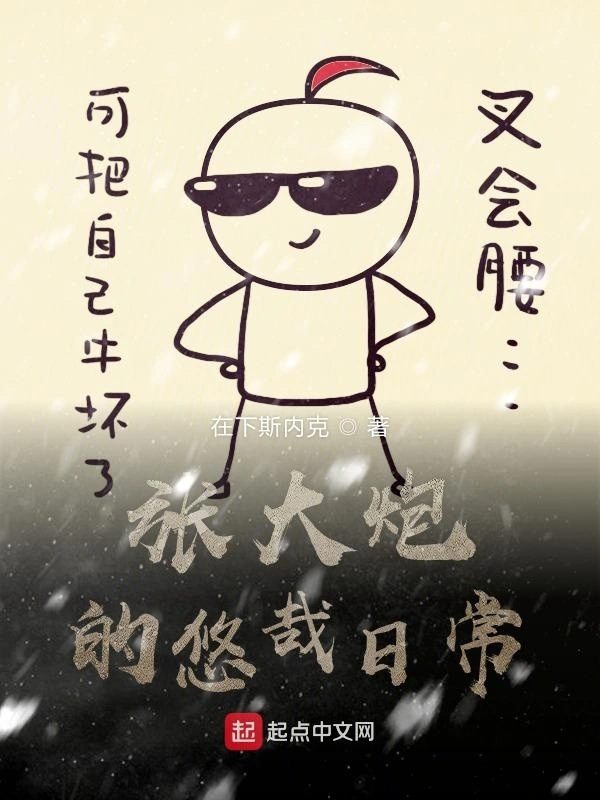 叉会腰…
可把自己牛坏了
在下斯内克 ◎ 著
张大炮
的悠哉日常
起 起点中文网